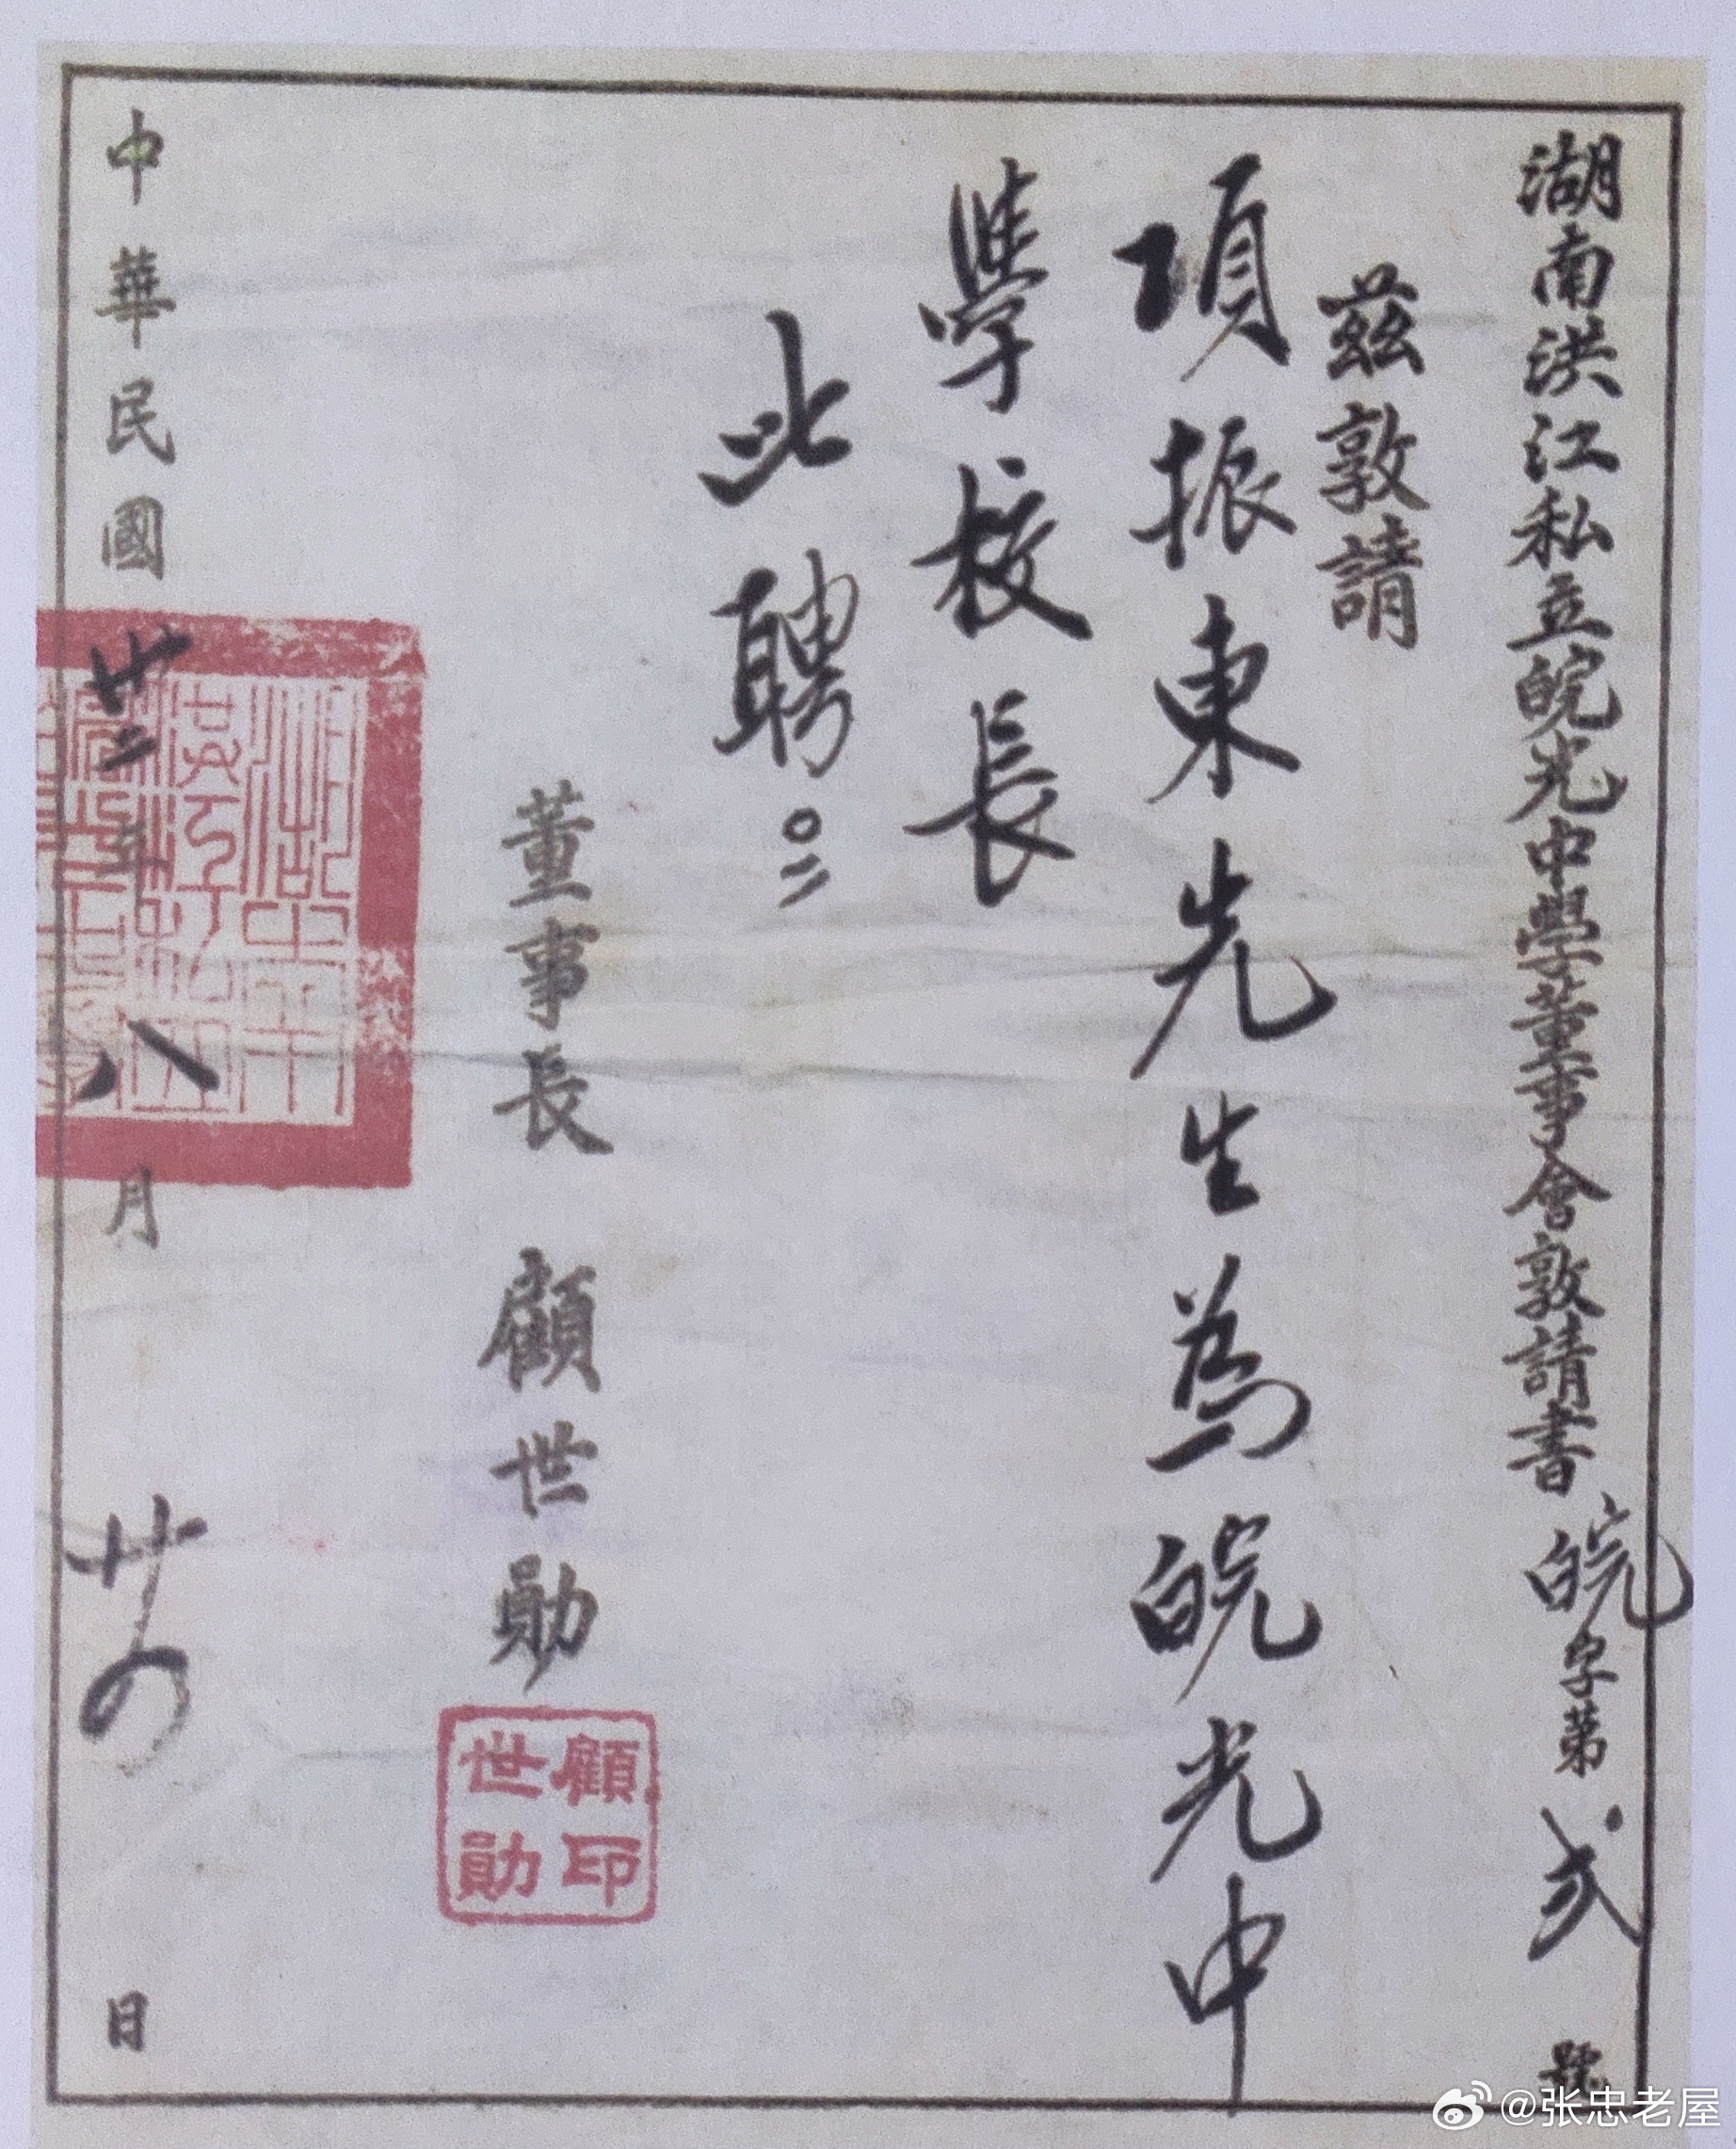 湖南洪江私立皖光中學董事會敦請書 皖字第貳號
茲敦請
項振東先生為皖光中
學校長
此聘
董事長 顧世勛
顧世勛印
中華民國卅二年八月廿日
@张忠老屋